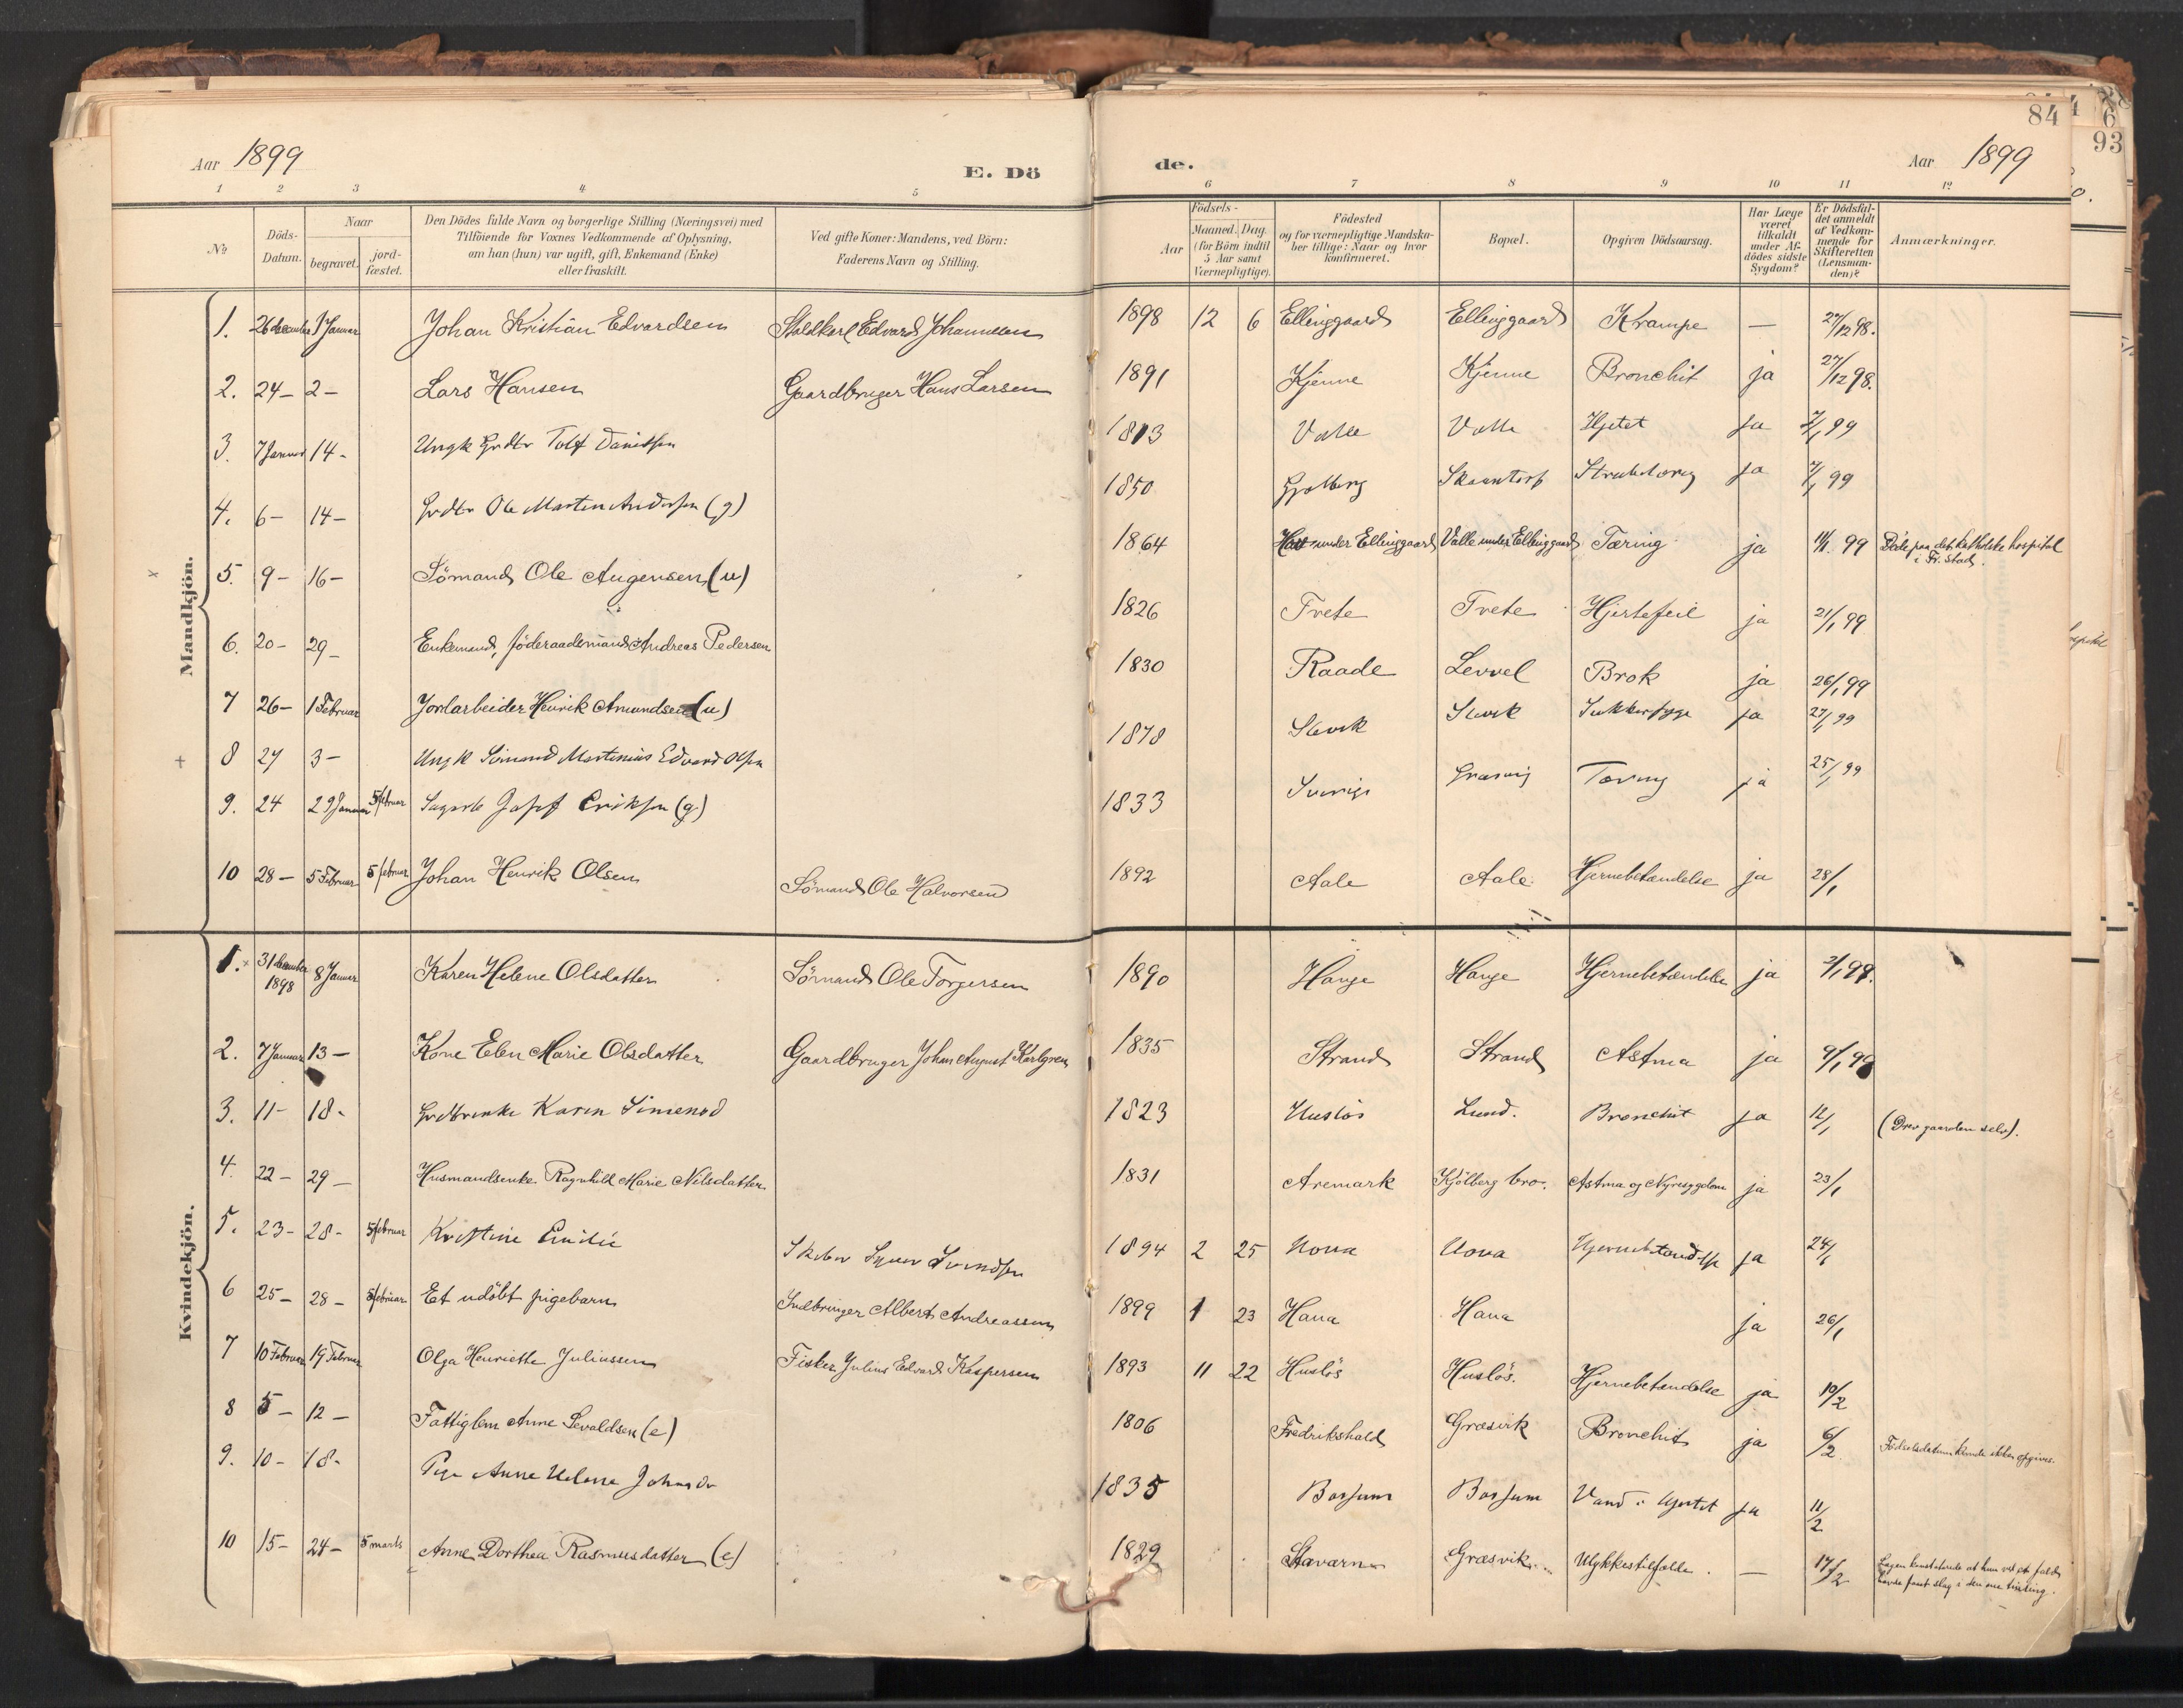 84
93
Aar 1899
E. Dö
de.
Aar 1899
1 2 3 4 5 6 7 8 9 10 11 12
No
Döds-Datum.
Naar
begravet.
jord-fæstet.
Den Dödes fulde Navn og borgerlige Stilling (Næringsvei) med
Tilföiende for Voxnes Vedkommende af Oplysning,
om han (hun) var ugift, gift, Enkemand (Enke)
eller fraskilt.
Ved gifte Koner: Mandens, ved Börn:
Faderens Navn og Stilling.
Födsels-
Aar
Maaned. Dag.
(for Börn indtil
5 Aar samt
Værnepligtige).
Födested
og for værnepligtige Mandskaber tillige: Naar og hvor
konfirmeret.
Bopæl.
Opgiven Dödsaarsag.
Har Læge
været
tilkaldt
under Afdödes sidste
Sygdom?
Er Dödsfaldet anmeldt
af Vedkommende for
Skifteretten
(Lensmanden)?
Anmærkninger.
Mandkjön.
1. 26 december 1 Januar Johan Kristian Edvardsen Staldkarl Edvard Johannesen 1898 12 6 Ellinggaard Ellinggaard Krampe — 27/12 98.
2. 24 – 2 – Lars Hansen Gaardbruger Hans Larsen 1891 Kjenne Kjenne Bronchit ja 27/12 98.
3. 7 Januar 14 – Ungk Grdbr Danielsen 1813 Valle Valle Hjertet Ja 7/1 99
4. 6 – 14 – Grdbr Ole Martin Andersen (g) 1850 Skaantorp ja 7/1 99
5. 9 – 16 – Sömand Ole Augensen (u) 1864 under Ellinggaard Valle under Ellinggaard Tæring ja 11/1 99 Döde paa det katholske hospital
i Fr.stad.
6. 20 – 29 – Enkemand, föderaadsmand Andreas Pedersen 1826 Tvete Tvete Hjertefeil ja 21/1 99
7 26 – 1 Februar Jordarbeider Henrik Amundsen (u) 1830 Raade Levvel Brok ja 26/1 99
8 27 3 – Ungk Sömand Martinius Edvard Olsen 1878 Slevik Slevik Sukkersyge ja 27/1 99
9. 24 29 Januar 5 februar Sagarb Josef Eriksen (g) 1833 Sverige Græsvig Tæring ja 25/1 99
10 28 – 5 Februar 5 februar Johan Henrik Olsen Sömand Ole Halvorsen 1892 Aale Aale Hjernebetændelse ja 28/1
Kvindekjön.
1. 31 december 1898 8 Januar Karen Helene Olsdatter Sömand Ole Torgersen 1890 Hauge Hauge Hjernebetændelse ja 2/1 99.
2. 7 Januar 13 – Kone Elen Marie Olsdatter Gaardbruger Johan August Karlgren 1835 Strand Strand Astma ja 9/1 99
3. 11 – 18 – Grdbrenke Karen Simensd 1823 Huslös Lund. Bronchit ja 12/1 (Drev gaarden selv).
4. 22 – 29 – Husmandsenke Ragnhild Marie Nilsdatter 1831 Aremark Kjölberg bro. Astma og Nyresygdom ja 23/1
5. 23 – 28 – 5 februar Kristine Emilie Svendsen 1894 2 25 Hjernebetændelse ja 24/1
6 25 – 28 – 5 februar Et udöbt pigebarn Indbringer Albert Andreassen 1899 1 23 Hana Hana ja 26/1
7 10 Februar 19 Februar Olga Henriette Juliussen Fisker Julius Edvard Kaspersen 1893 11 22 Huslös Huslös. Hjernebetændelse ja 10/2
8 5 – 12 – Fattiglem Anne Sevaldsen (e) 1806 Fredrikshald Græsvik Bronchit ja 6/2 Födselsdatum kunde ikke opgives.
9. 10 – 18 – Pige Anne Helene Johnsdr 1835 Borsum Borsum Vand i Hjertet ja 11/2
10 15 – 24 – 5 marts Anne Dorthea Rasmusdatter (e) 1829 Staværn Græsvik Ulykkestilfælde. — 17/2 Lægen konstaterede at hun ved et fald
havde faaet slag i den ene tinding.